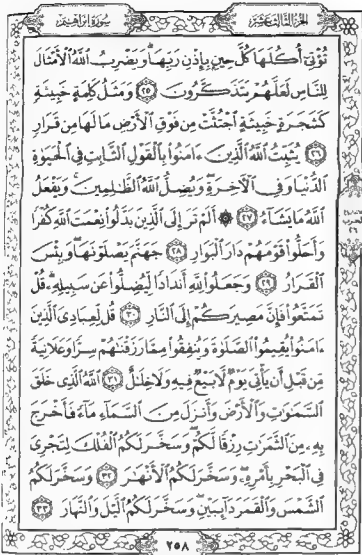 الجزء الثالث عشر
سورة إبراهيم
تُؤْتِىٓ أُكُلَهَا كُلَّ حِينٍۭ بِإِذْنِ رَبِّهَا ۗ وَيَضْرِبُ ٱللَّهُ ٱلْأَمْثَالَ
لِلنَّاسِ لَعَلَّهُمْ يَتَذَكَّرُونَ ٢٥ وَمَثَلُ كَلِمَةٍ خَبِيثَةٍ
كَشَجَرَةٍ خَبِيثَةٍ ٱجْتُثَّتْ مِن فَوْقِ ٱلْأَرْضِ مَا لَهَا مِن قَرَارٍ
٢٦ يُثَبِّتُ ٱللَّهُ ٱلَّذِينَ ءَامَنُوا۟ بِٱلْقَوْلِ ٱلثَّابِتِ فِى ٱلْحَيَوٰةِ
ٱلدُّنْيَا وَفِى ٱلْـَٔاخِرَةِ ۖ وَيُضِلُّ ٱللَّهُ ٱلظَّـٰلِمِينَ ۚ وَيَفْعَلُ
ٱللَّهُ مَا يَشَآءُ ٢٧ ۞ أَلَمْ تَرَ إِلَى ٱلَّذِينَ بَدَّلُوا۟ نِعْمَتَ ٱللَّهِ كُفْرًا
وَأَحَلُّوا۟ قَوْمَهُمْ دَارَ ٱلْبَوَارِ ٢٨ جَهَنَّمَ يَصْلَوْنَهَا ۖ وَبِئْسَ
ٱلْقَرَارُ ٢٩ وَجَعَلُوا۟ لِلَّهِ أَندَادًا لِّيُضِلُّوا۟ عَن سَبِيلِهِۦ ۗ قُلْ
تَمَتَّعُوا۟ فَإِنَّ مَصِيرَكُمْ إِلَى ٱلنَّارِ ٣٠ قُل لِّعِبَادِىَ ٱلَّذِينَ
ءَامَنُوا۟ يُقِيمُوا۟ ٱلصَّلَوٰةَ وَيُنفِقُوا۟ مِمَّا رَزَقْنَـٰهُمْ سِرًّا وَعَلَانِيَةً
مِّن قَبْلِ أَن يَأْتِىَ يَوْمٌ لَّا بَيْعٌ فِيهِ وَلَا خِلَـٰلٌ ٣١ ٱللَّهُ ٱلَّذِى خَلَقَ
ٱلسَّمَـٰوَٰتِ وَٱلْأَرْضَ وَأَنزَلَ مِنَ ٱلسَّمَآءِ مَآءً فَأَخْرَجَ
بِهِۦ مِنَ ٱلثَّمَرَٰتِ رِزْقًا لَّكُمْ ۖ وَسَخَّرَ لَكُمُ ٱلْفُلْكَ لِتَجْرِىَ
فِى ٱلْبَحْرِ بِأَمْرِهِۦ ۖ وَسَخَّرَ لَكُمُ ٱلْأَنْهَـٰرَ ٣٢ وَسَخَّرَ لَكُمُ
ٱلشَّمْسَ وَٱلْقَمَرَ دَآئِبَيْنِ ۖ وَسَخَّرَ لَكُمُ ٱلَّيْلَ وَٱلنَّهَارَ ٣٣
٢٥٨